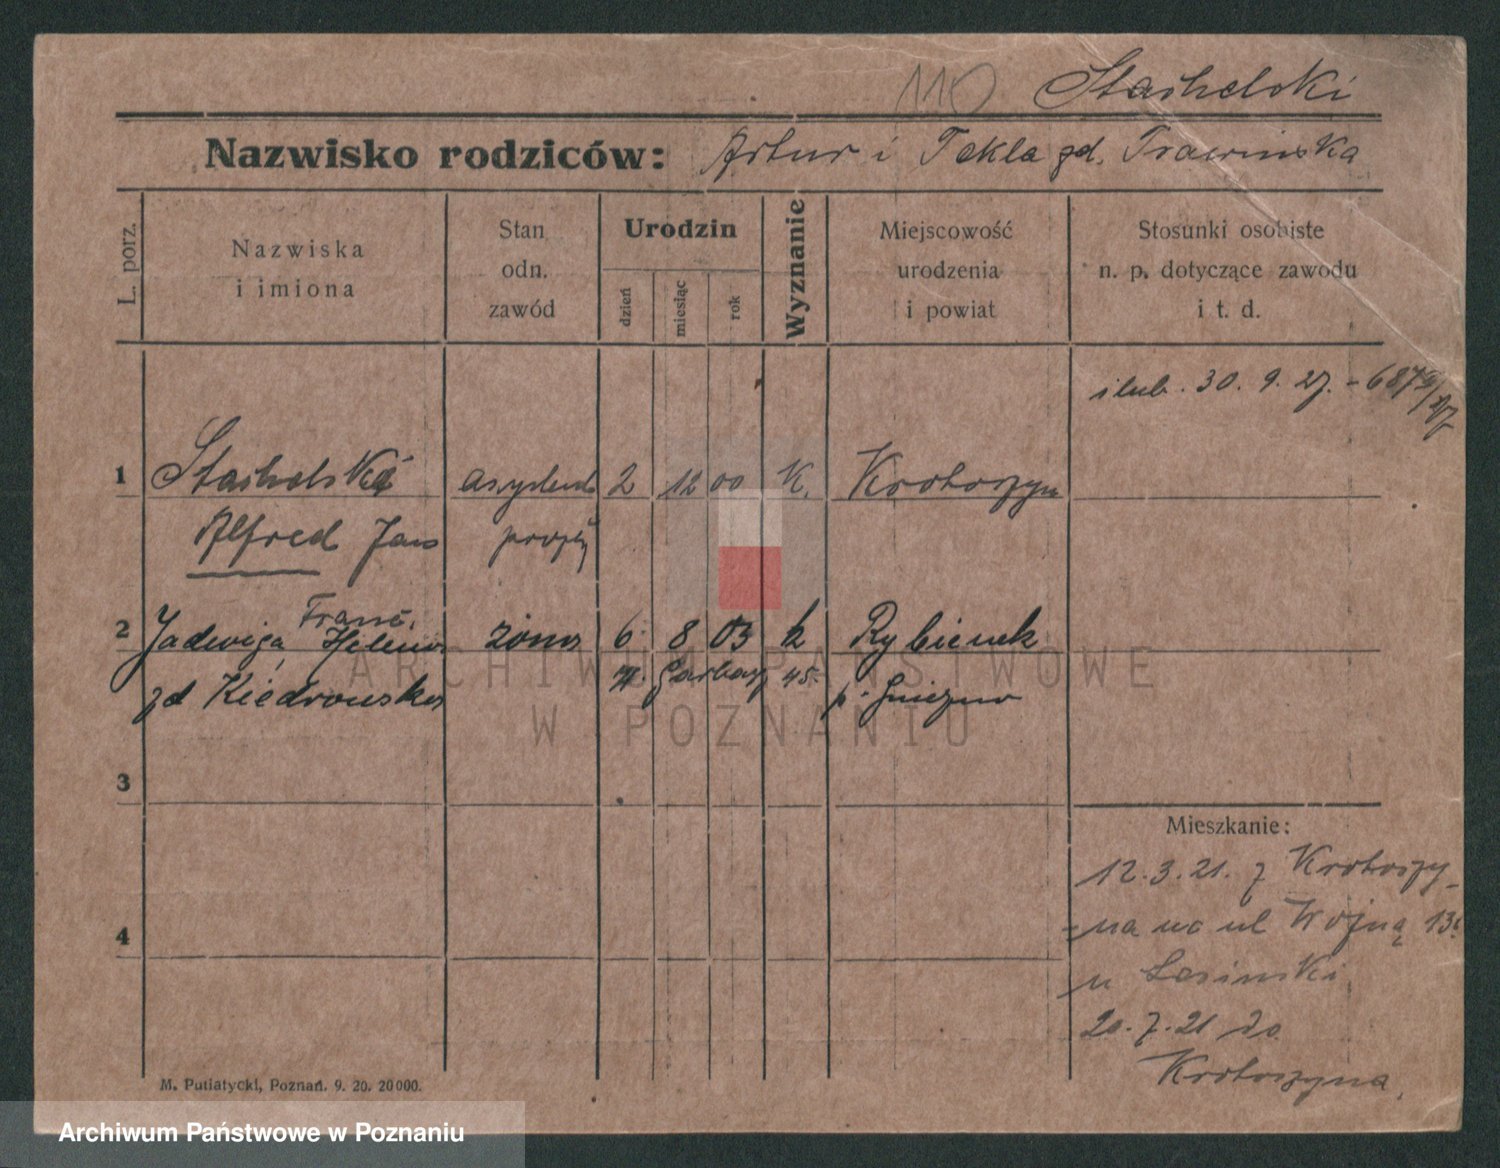 110 Stachelski
Nazwisko rodziców: Artur i Tekla zd. Trawinska
L. porz.
Nazwiska
i imiona
Stan
odn.
zawód
Urodzin
dzień
miesiąc
rok
Wyznanie
Miejscowość
urodzenia
i powiat
Stosunki osobiste
n. p. dotyczące zawodu
i t. d.
30. 9. 27.
1 Stachelski asystent 2 12 00 K. Krotoszyn
Alfred Jan
Franc.
2 Jadwiga, Helena żona 6 8 03 k Rybieniek
zd Kiedrowska Garbary 45. p. Gniezno
3
Mieszkanie:
12.3.21. z Krotoszy-
4
-na na ul Wojną 13
u Lasinski
20.7.21 do
Krotoszyna.
M. Putiatycki, Poznań. 9. 20. 20000.
ARCHIWUM PAŃSTWOWE
W POZNANIU
Archiwum Państwowe w Poznaniu